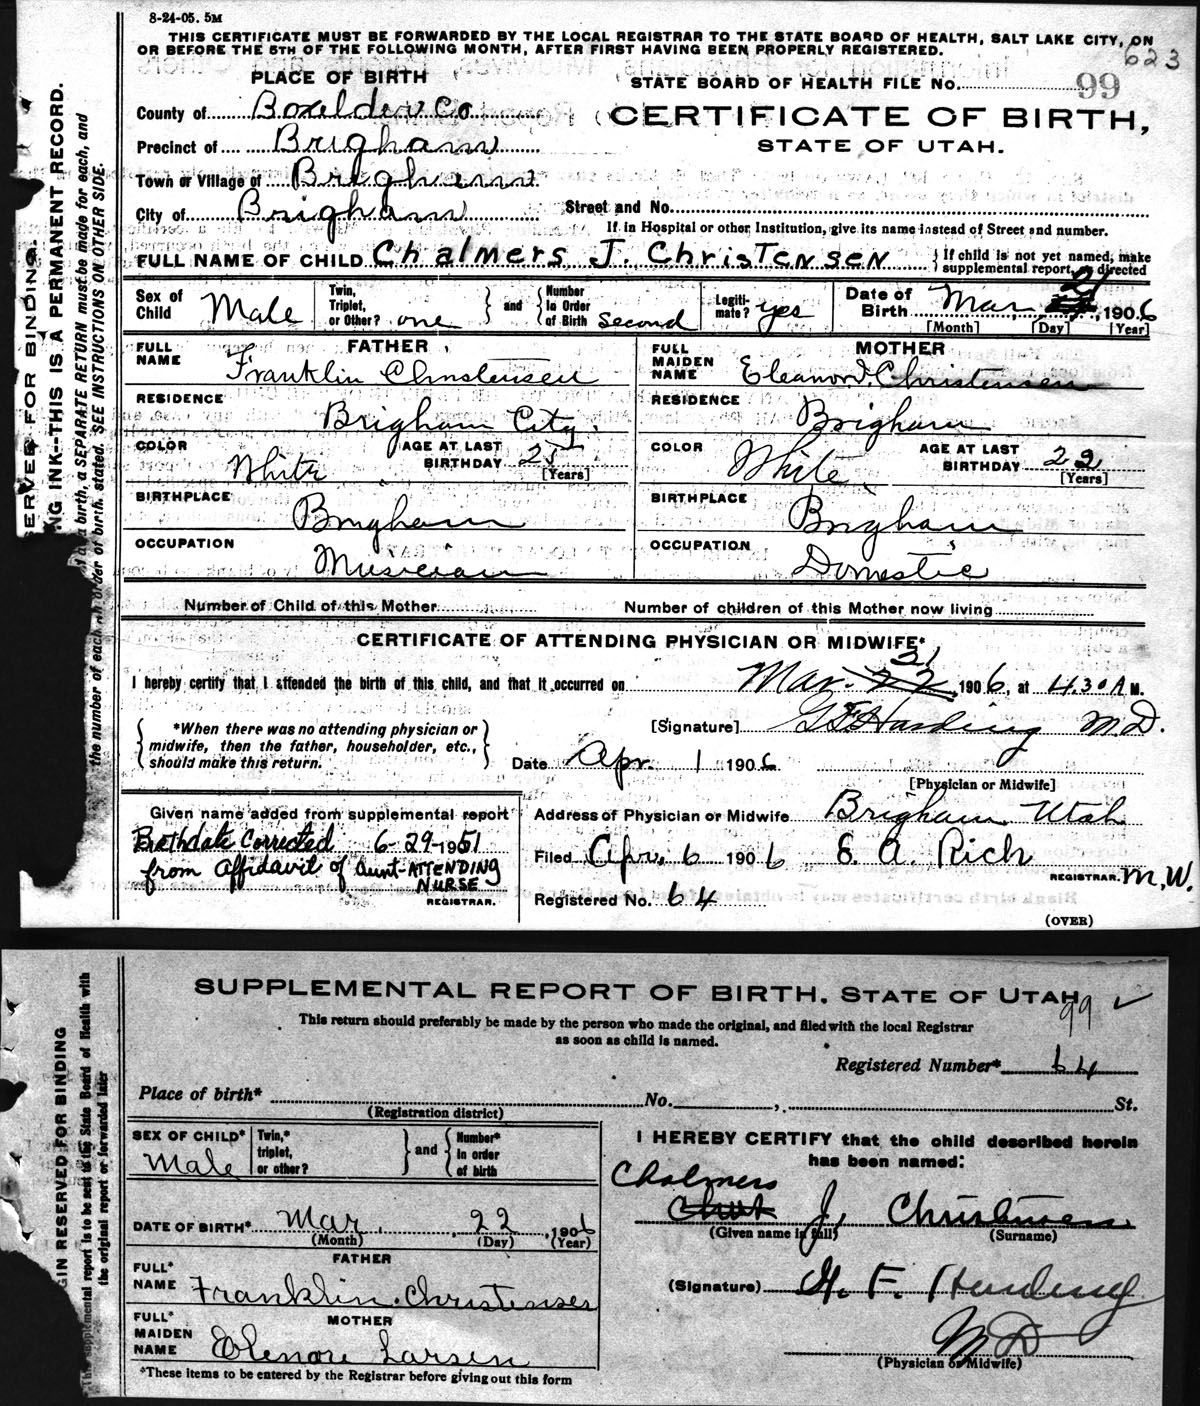 8-24-05. 5M
THIS CERTIFICATE MUST BE FORWARDED BY THE LOCAL REGISTRAR TO THE STATE BOARD OF HEALTH, SALT LAKE CITY, ON
OR BEFORE THE 5TH OF THE FOLLOWING MONTH, AFTER FIRST HAVING BEEN PROPERLY REGISTERED.
623
PLACE OF BIRTH
STATE BOARD OF HEALTH FILE No. 99
County of Boxelder Co
CERTIFICATE OF BIRTH,
Precinct of Brigham
STATE OF UTAH.
Town or Village of Brigham
City of Brigham
Street and No.
If in Hospital or other Institution, give its name instead of Street and number.
FULL NAME OF CHILD Chalmers J. Christensen
If child is not yet named, make
supplemental report, as directed
Sex of Child Male
Twin, Triplet, or Other? one
and
Number in Order of Birth second
Legiti-mate? yes
Date of Birth Mar 21, 1906
[Month] [Day] [Year]
FATHER
FULL NAME Franklin Christensen
MOTHER
FULL MAIDEN NAME Eleanor Christensen
RESIDENCE Brigham City.
RESIDENCE Brigham
COLOR White
AGE AT LAST BIRTHDAY 25 [Years]
COLOR White
AGE AT LAST BIRTHDAY 22 [Years]
BIRTHPLACE Brigham
BIRTHPLACE Brigham
OCCUPATION Musician
OCCUPATION Domestic
Number of Child of this Mother
Number of children of this Mother now living
CERTIFICATE OF ATTENDING PHYSICIAN OR MIDWIFE*
21
I hereby certify that I attended the birth of this child, and that it occurred on Mar. 22, 1906, at 4.30 A M.
*When there was no attending physician or
midwife, then the father, householder, etc.,
should make this return.
[Signature] G F Harding M.D.
Date Apr. 1 1906
[Physician or Midwife]
Given name added from supplemental report
Birthdate Corrected 6-29-1951
from Affidavit of Aunt-ATTENDING
NURSE
REGISTRAR.
Address of Physician or Midwife Brigham Utah
Filed Apr. 6 1906 E. A. Rich
REGISTRAR. M.W.
Registered No. 64
(OVER)
SERVED FOR BINDING.
NG INK--THIS IS A PERMANENT RECORD.
a birth, a SEPARATE RETURN must be made for each, and
the number of each, in order of birth, stated. SEE INSTRUCTIONS ON OTHER SIDE.
SUPPLEMENTAL REPORT OF BIRTH, STATE OF UTAH
99 ✓
This return should preferably be made by the person who made the original, and filed with the local Registrar
as soon as child is named.
Registered Number* 64
Place of birth* No. , St.
(Registration district)
SEX OF CHILD* Male
Twin,* triplet, or other?
and
Number* in order of birth
DATE OF BIRTH* Mar. 22, 1906
(Month) (Day) (Year)
FATHER
FULL* NAME Franklin Christensen
MOTHER
FULL* MAIDEN NAME Elenore Larsen
*These items to be entered by the Registrar before giving out this form
I HEREBY CERTIFY that the child described herein
has been named:
Chalmers
J. Christensen
(Given name in full) (Surname)
(Signature) G. F. Harding
M D
(Physician or Midwife)
GIN RESERVED FOR BINDING
This supplemental report is to be sent to the State Board of Health with
the original report or forwarded later